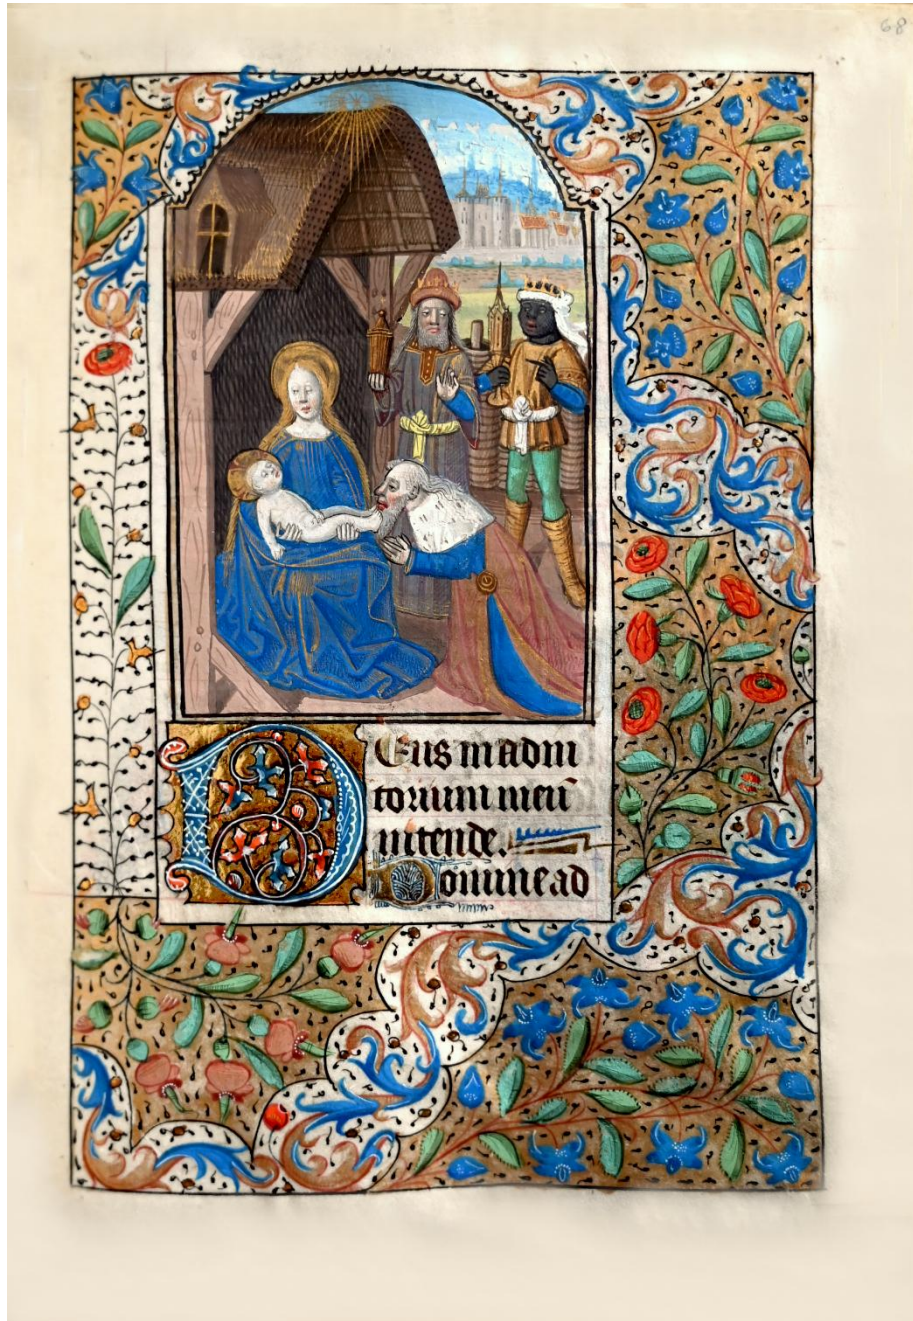 68
Deus in adiu
torium meū
intende.
Domine ad